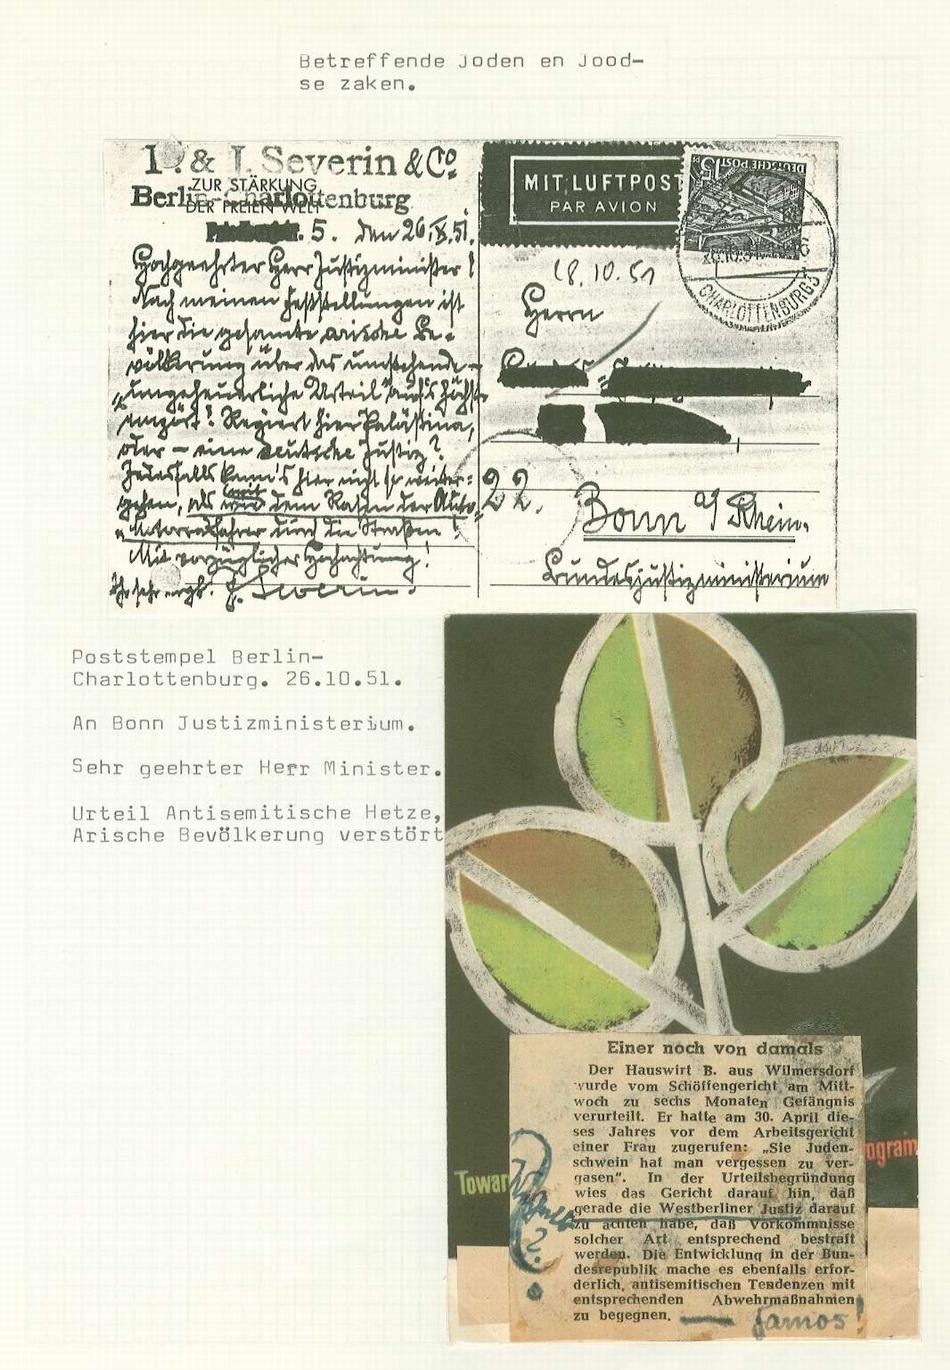 Betreffende Joden en Jood-
se zaken.
& J. Severin & Co.
ZUR STÄRKUNG
Berlin-Charlottenburg
DER FREIEN WELT
5. den 26.X.51.
Hochgeehrter Herr Justizminister!
Nach meinen Feststellungen ist
hier die gesamte arische Be-
völkerung über das umstehende
"ungeheuerliche Urteil" auf's höchste
empört! Regiert hier Palästina,
oder – eine deutsche Justiz?
Jedenfalls kann's hier nicht so weiter-
gehen, als mit dem Rasen der Auto-
u. Motorradfahrer durch die Straßen!
Mit vorzüglicher Hochachtung!
Ihr sehr ergb. Severin.
MIT LUFTPOST
PAR AVION
DEUTSCHE POST
15
26.10.51
CHARLOTTENBURG
28.10.51
Herrn
22.
Bonn a/ Rhein.
Bundesjustizministerium
Poststempel Berlin-
Charlottenburg. 26.10.51.
An Bonn Justizministerium.
Sehr geehrter Herr Minister.
Urteil Antisemitische Hetze,
Arische Bevölkerung verstört
Towar
ogram
Einer noch von damals
Der Hauswirt B. aus Wilmersdorf
wurde vom Schöffengericht am Mitt-
woch zu sechs Monaten Gefängnis
verurteilt. Er hatte am 30. April die-
ses Jahres vor dem Arbeitsgericht
einer Frau zugerufen: „Sie Juden-
schwein hat man vergessen zu ver-
gasen“. In der Urteilsbegründung
wies das Gericht darauf hin, daß
gerade die Westberliner Justiz darauf
zu achten habe, daß Vorkommnisse
solcher Art entsprechend bestraft
werden. Die Entwicklung in der Bun-
desrepublik mache es ebenfalls erfor-
derlich, antisemitischen Tendenzen mit
entsprechenden Abwehrmaßnahmen
zu begegnen. — famos!